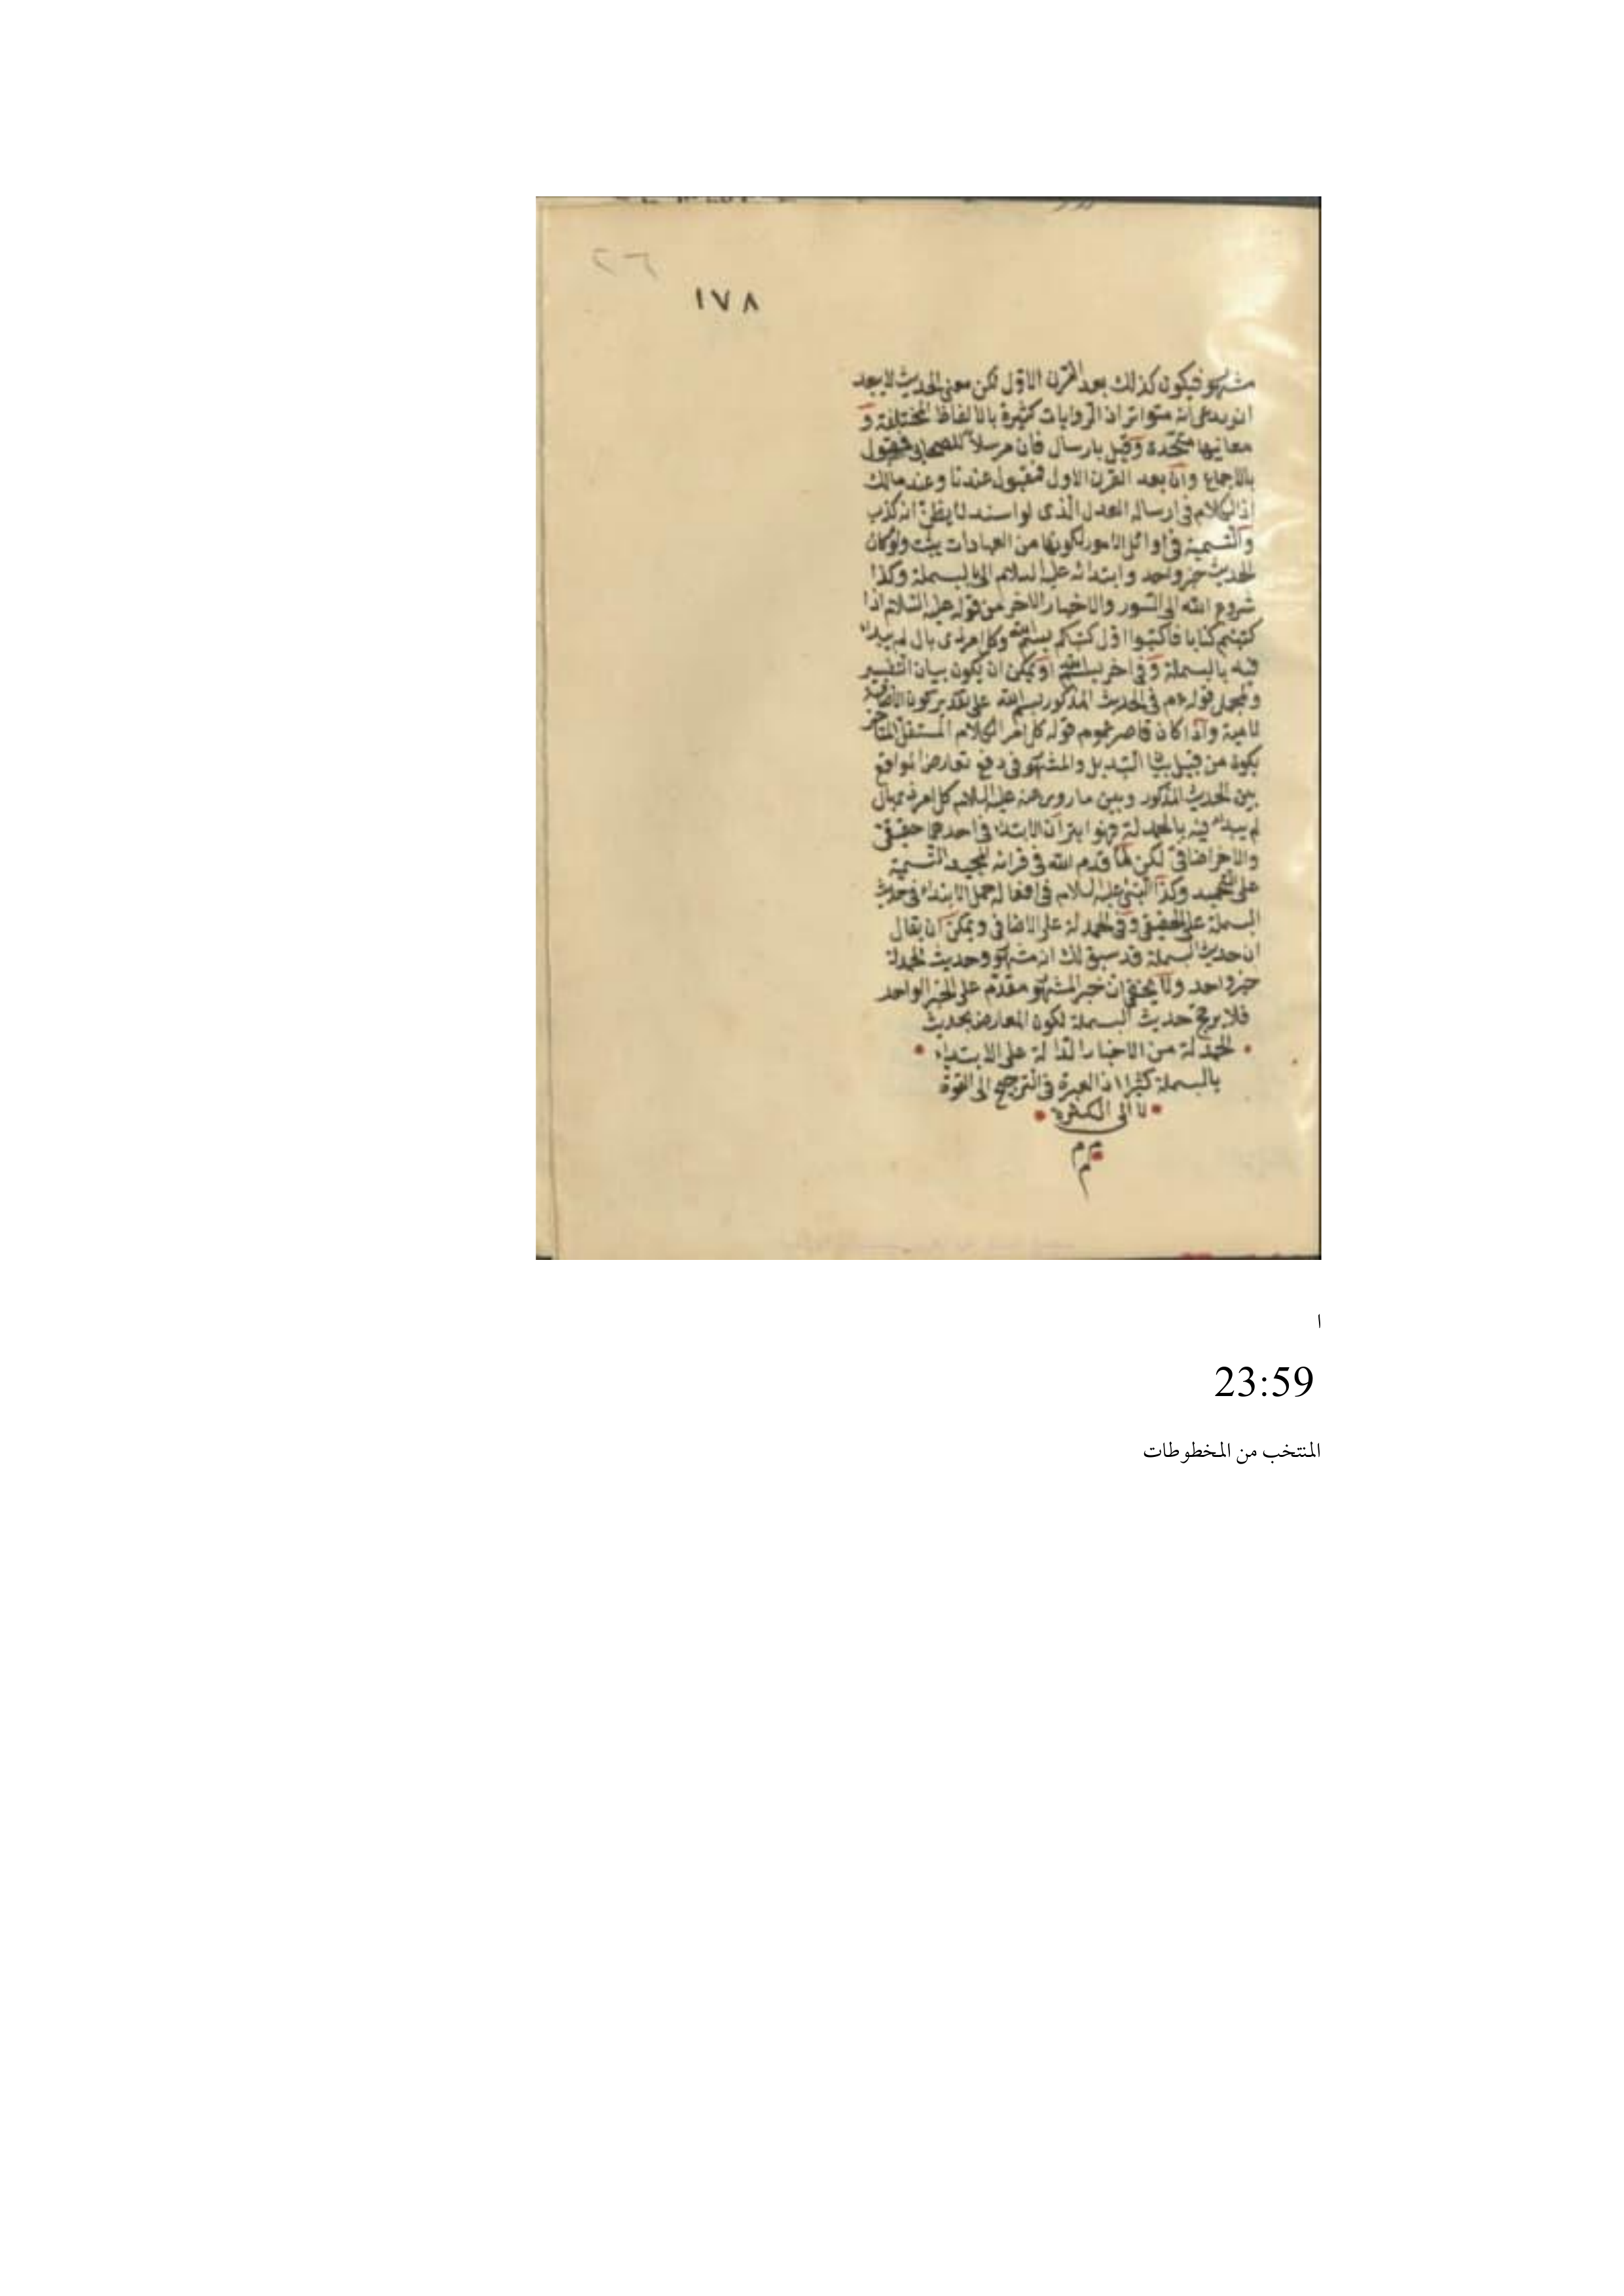 ٢٦
١٧٨
مشهو فيكون كذلك بعد القرن الاول لكن معنى الحديث لا يبعد
ان يدعى انه متواتر اذ الروايات كثيرة بالالفاظ المختلفة و
معانيها متحدة وقيل بارسال فان مرسلا للصحابى فمقبول
بالاجماع وان بعد القرن الاول فمقبول عندنا وعند مالك
اذ الكلام فى ارسال العدل الذى لو اسند لا يظن انه كذب
والتسمية فى اوائل الامور لكونها من العبادات يثبت ولو كان
الحديث خبر واحد وابتدائه عليه السلام الى بالبسملة وكذا
شروع الله الى السور والاخبار الاخر من قوله عليه السلام اذا
كتبتم كتابا فاكتبوا اول كتبكم بسم الله وكل امر ذى بال لم يبداء
فيه بالبسملة وفى اخر بسم الله او يمكن ان يكون بيان التفسير
قوله عم فى الحديث المذكور بسم الله على تقدير كون
لامية واذا كان قاصر عموم قوله كل امر الكلام المستقل المتاخر
يكون من قبيل التبديل والمشهو فى دفع تعارض الواقع
بين الحديث المذكور وبين ما روى عنه عليه السلام كل امر ذى بال
لم يبداء فيه بالحمدلة فهو ابتر ان الابتداء فى احدهما حقيقى
والاخر اضافى لكن لما قدم الله فى قرانه المجيد التسمية
على التحميد وكذا النبى عليه السلام فى افعاله حمل الابتداء فى حديث
البسملة على الحقيقى وفى الحمدلة على الاضافى ويمكن ان يقال
ان حديث البسملة قد سبق لك انه مشهو وحديث الحمدلة
خبر واحد ولا يخفى ان خبر المشهو مقدم على الخبر الواحد
فلا يرجح حديث البسملة لكون المعارض بحديث
الحمدلة من الاخبار الدالة على الابتداء
بالبسملة كثيرا اذ العبرة فى الترجيح الى القوة
لا الى الكثرة
ا
23:59
المنتخب من المخطوطات